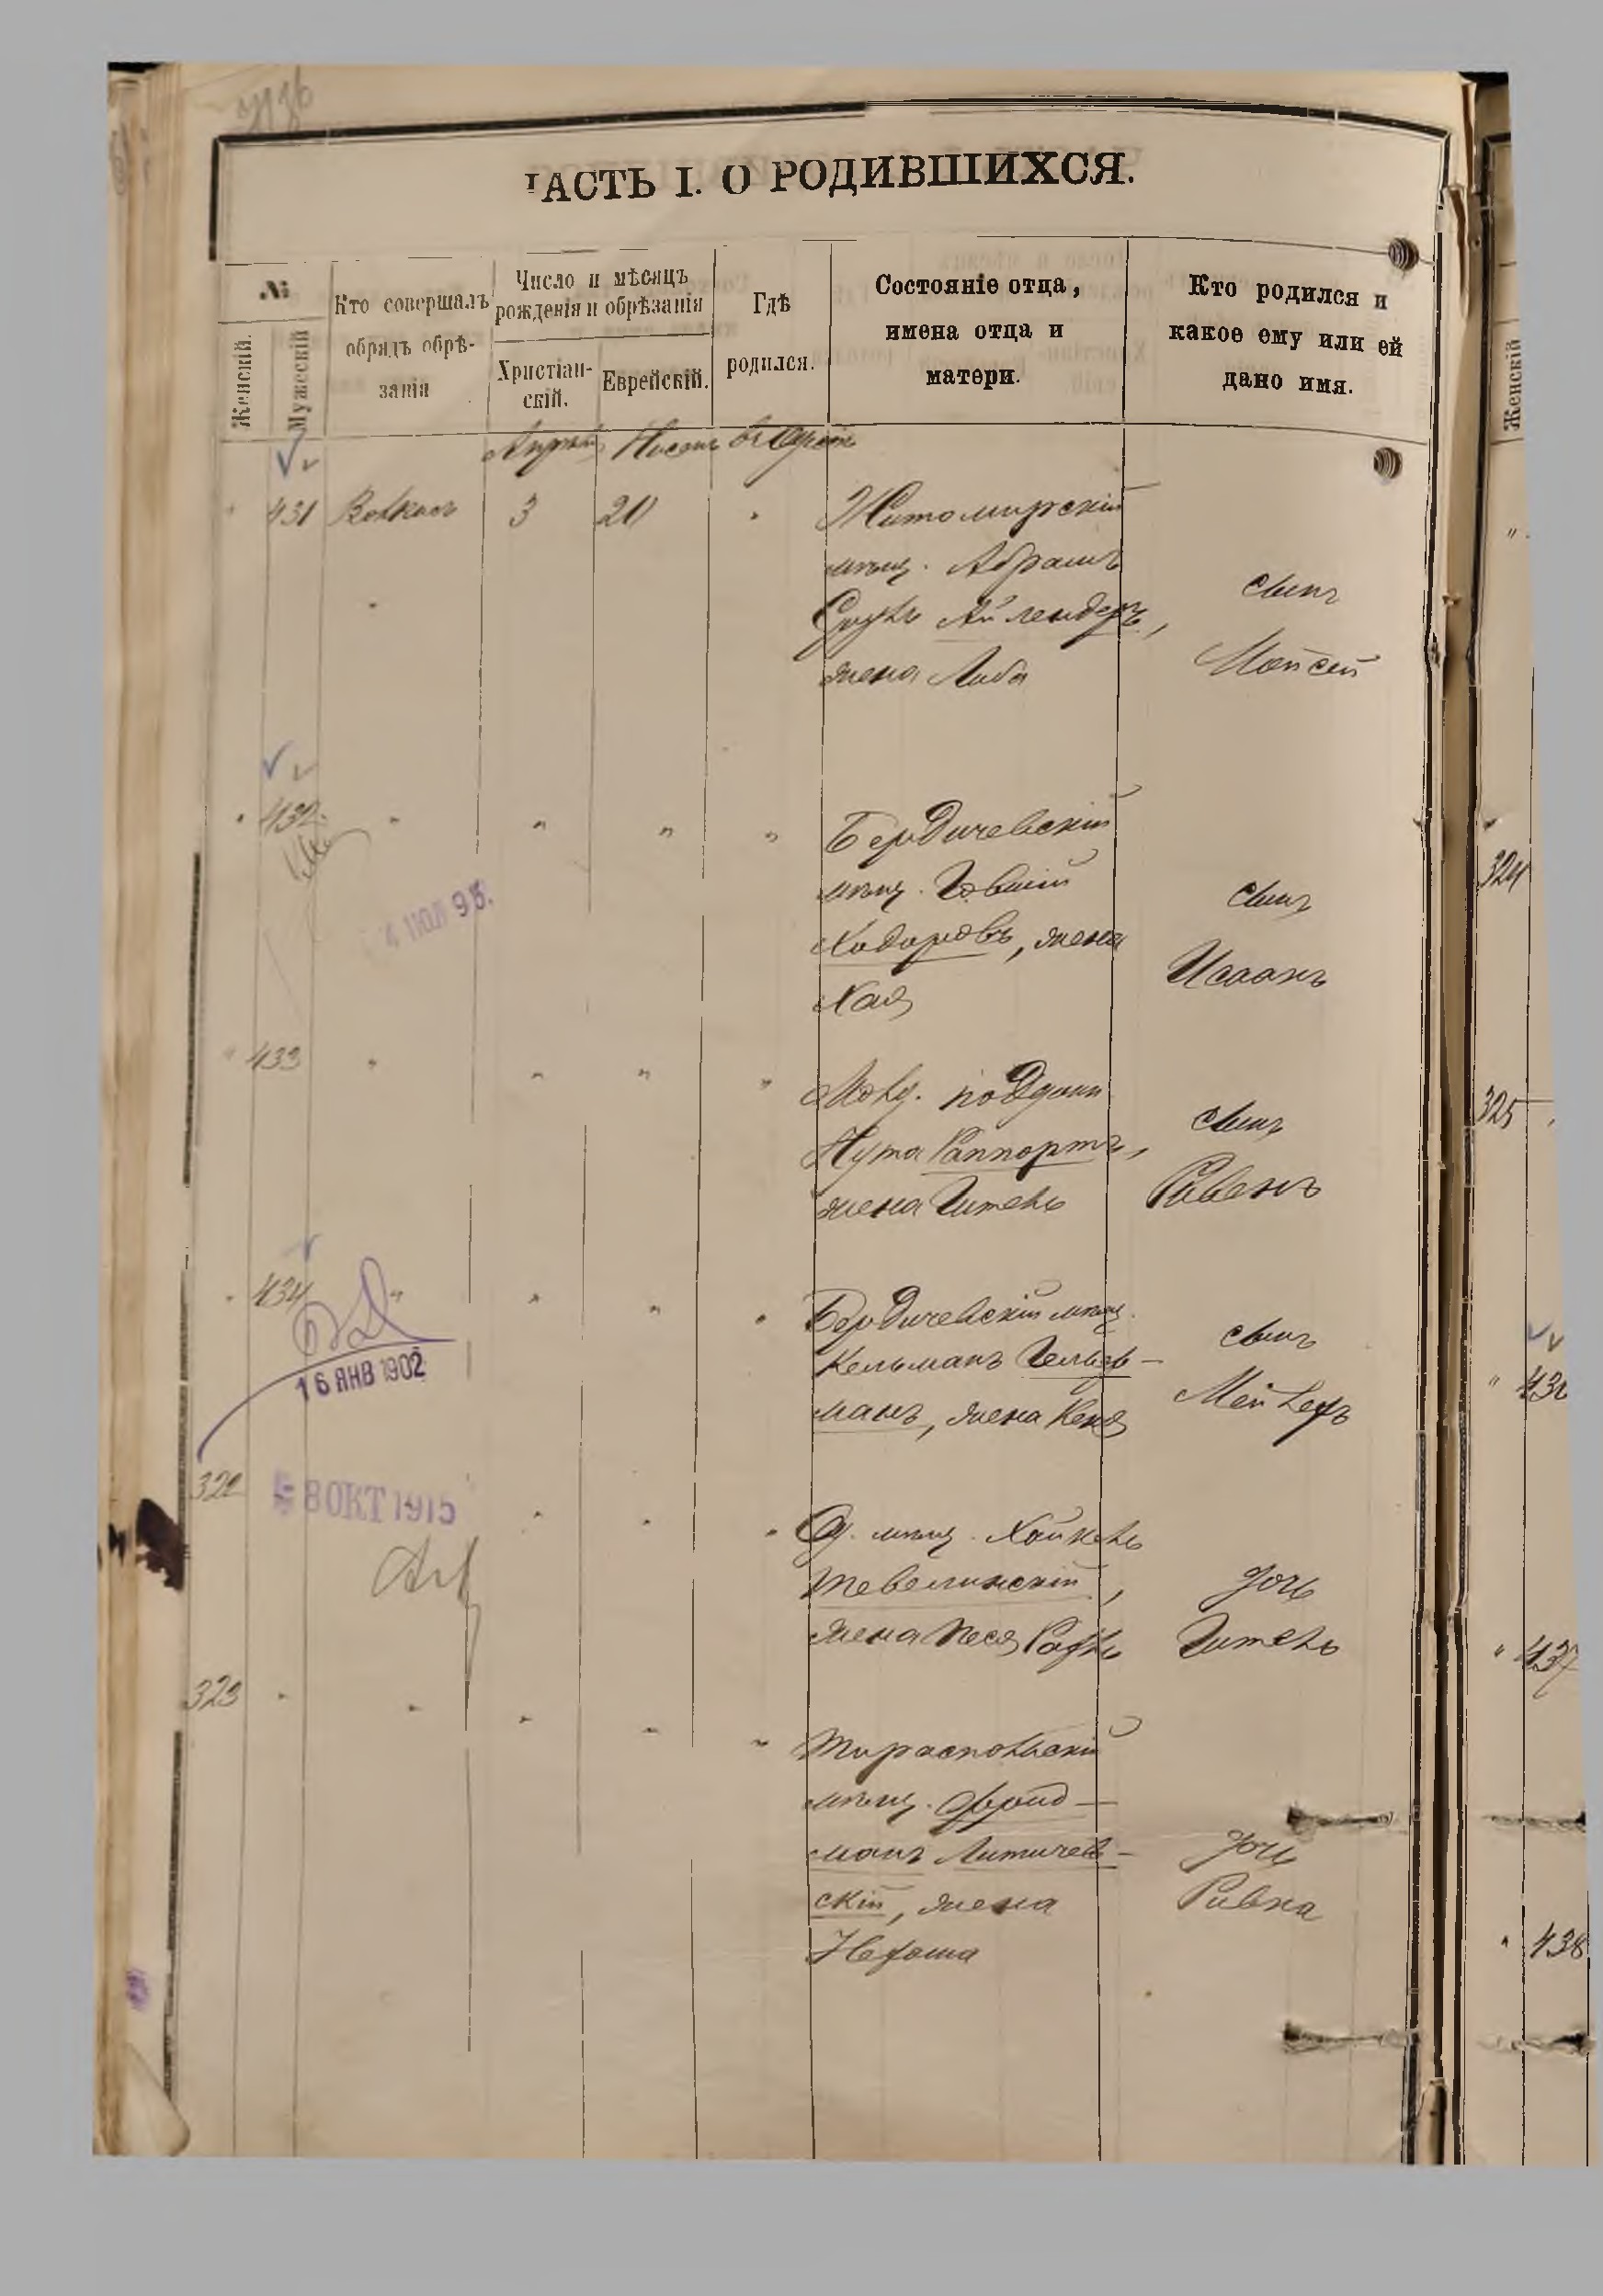 ЧАСТЬ I. О РОДИВШИХСЯ.
№
Женскій.
Мужескій
Кто совершалъ
обрядъ обрѣ-
занія
Число и мѣсяцъ
рожденія и обрѣзанія
Христіан-
скій.
Еврейскій.
Гдѣ
родился.
Состояніе отца,
имена отца и
матери.
Кто родился и
какое ему или ей
дано имя.
Апрѣль Нисанъ въ Одессѣ
" 431 Волкасъ 3 20 "
Житомирскій
мѣщ. Абрамъ
Срулъ Айлендеръ,
жена Либа
сынъ
Мойсей
" 432 " " " "
4 ІЮЛ 98.
Бердичевскій
мѣщ. Іовшій
Ходоровъ, жена
Хая
сынъ
Исаакъ
" 433 " " " "
Молд. поддан
Нута Раппортъ,
жена Гитель
сынъ
Рувенъ
" 434 " " " "
16 ЯНВ 1902
Бердичевскій мѣщ.
Кельманъ Гельф-
манъ, жена Кеня
сынъ
Мейлехъ
322 " " "
8 ОКТ 1915
Од. мѣщ. Хайкель
Тевелинскій,
жена Песя Рахль
дочь
Гитель
323 " " " " "
Тираспольскій
мѣщ. Фроид-
манъ Литичев-
скій, жена
Нехама
дочь
Ривка
Женскій
324
325
" 437
" 438